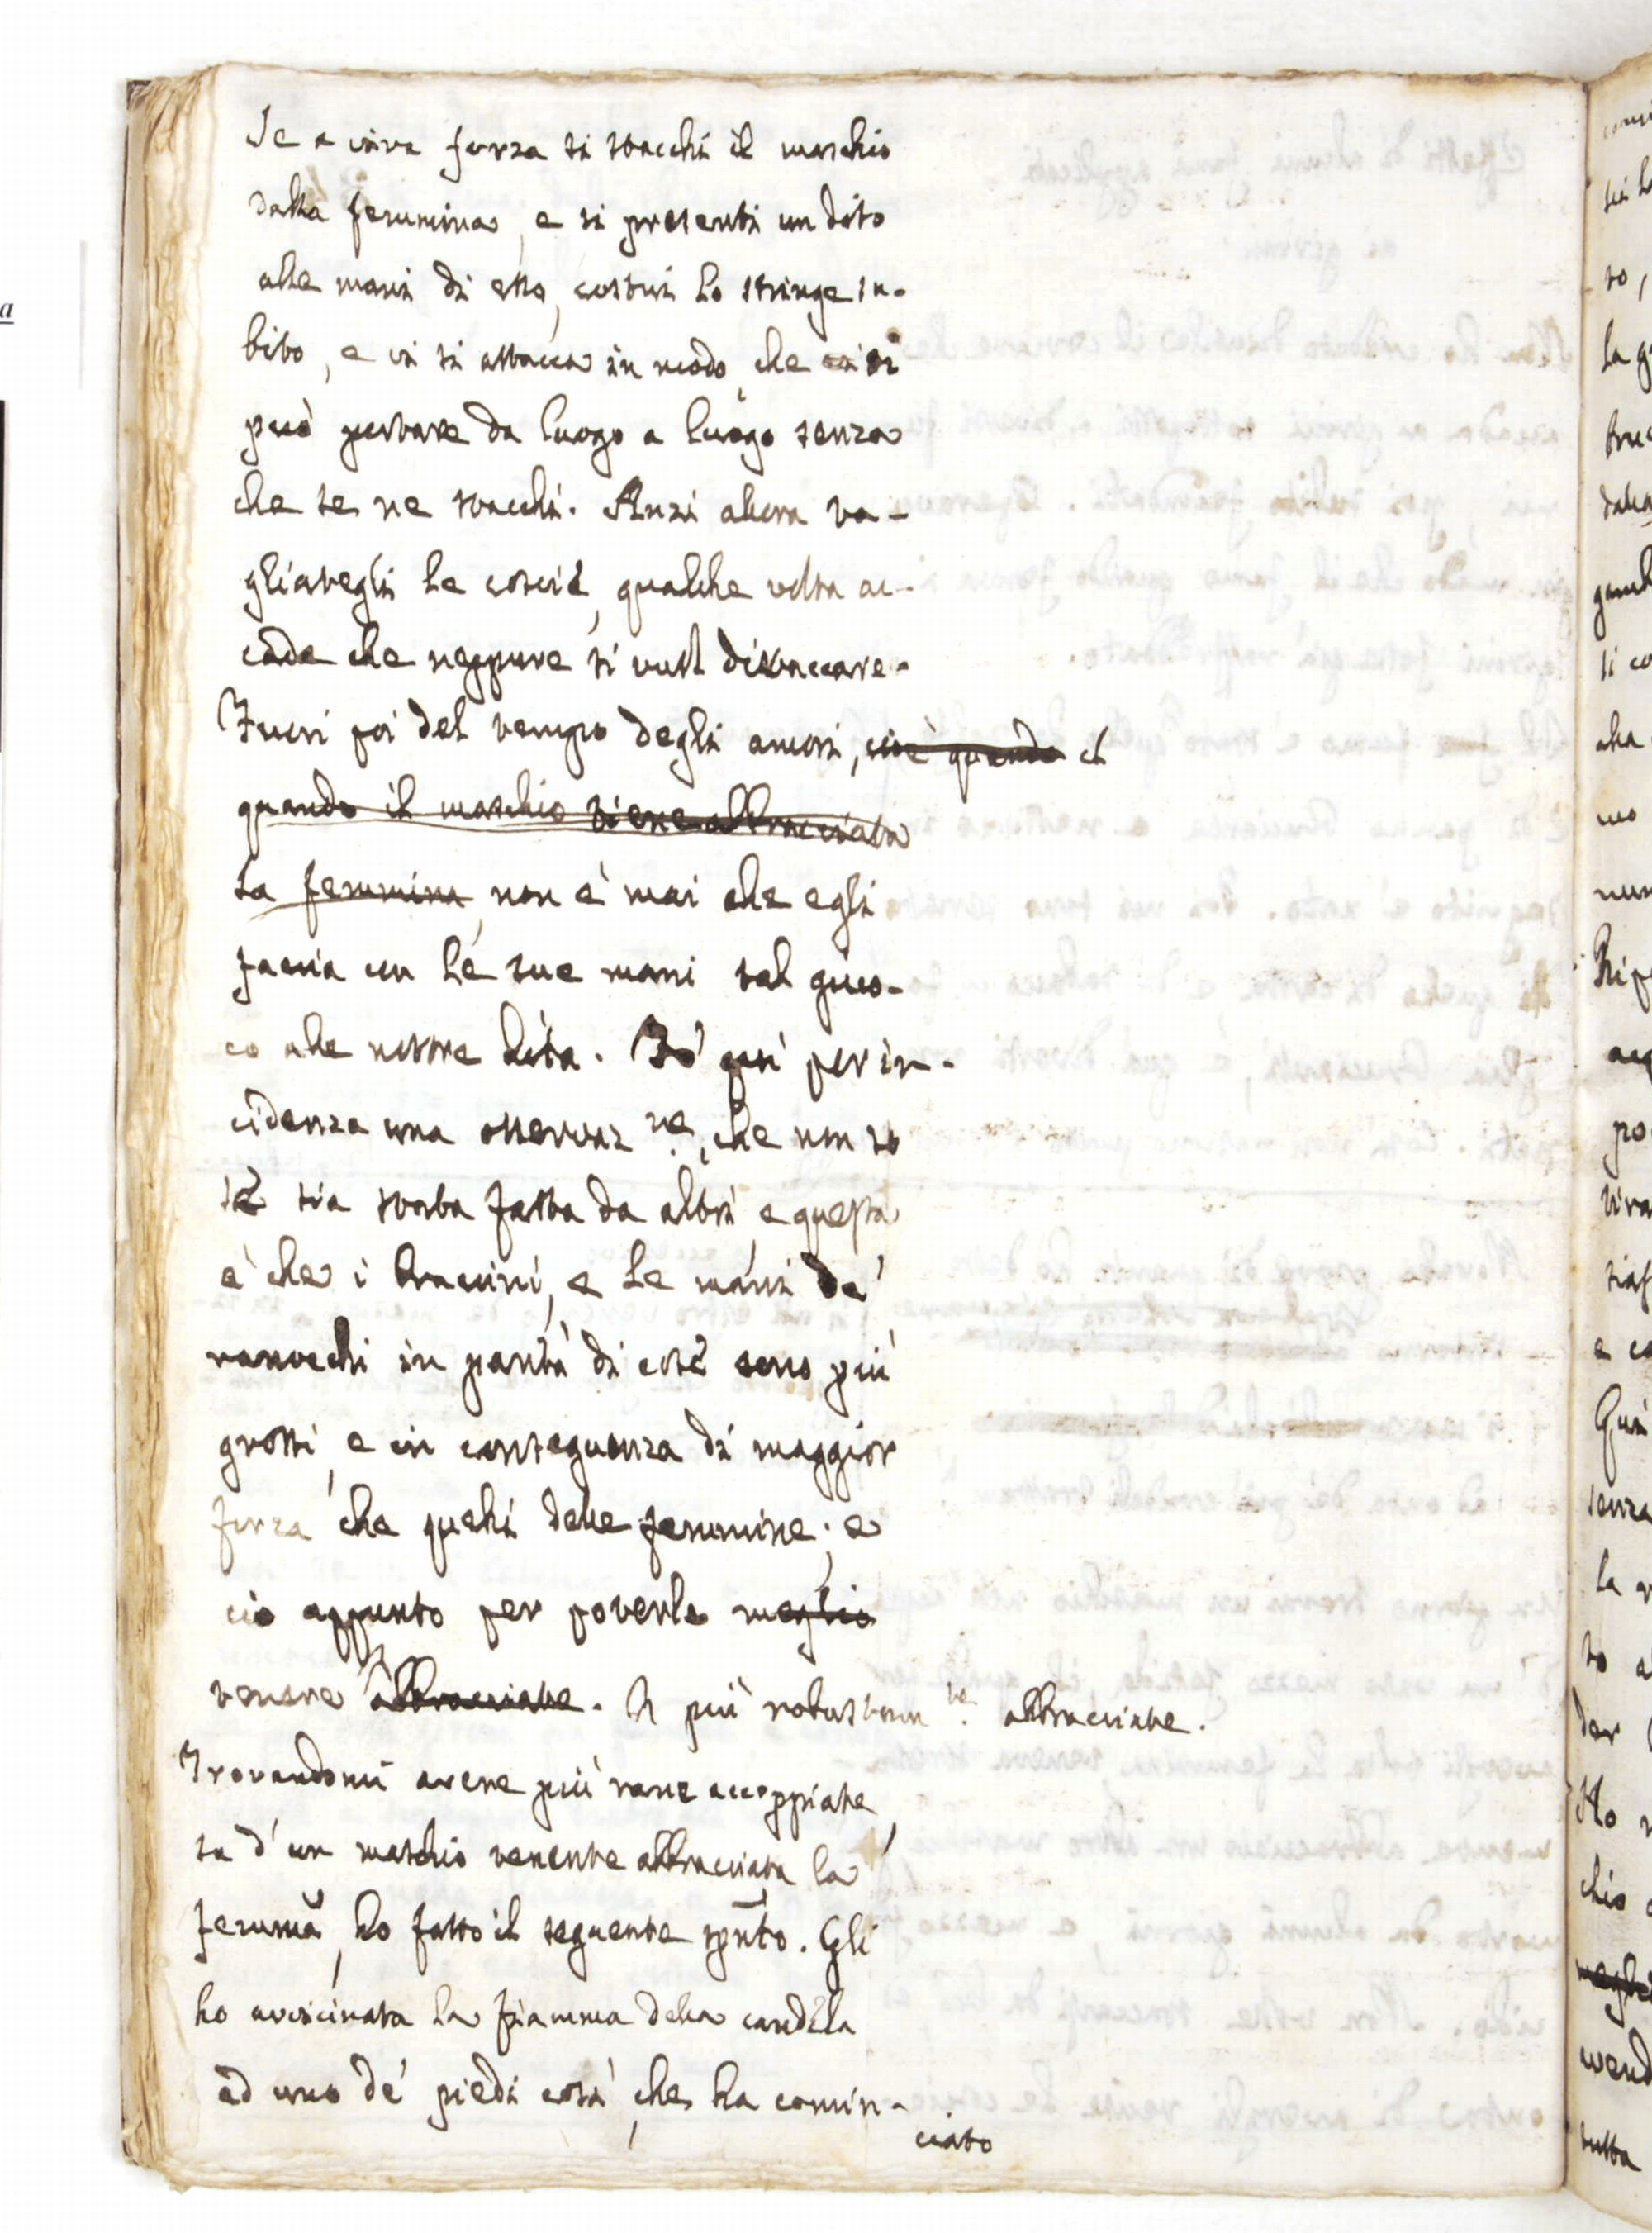 Se a viva forza si stacchi il maschio
dalla femmina, e si presenti un dito
alle mani di esso, costui lo stringe su-
bito, e vi si attacca in modo, che si
può portare da luogo a luogo senza
che se ne stacchi. Anzi allora ta-
gliategli le coscie, qualche volta ac-
cade che neppure si vuol distaccare.
Fuori poi del tempo degli amori, cioè quando
quando il maschio tiene abbracciata
la femmina, non è mai che egli
faccia con le sue mani tal giuo-
co alle nostre dita. Fò quì per in-
cidenza una osservaz.ne, che non so
se sia stata fatta da altri, e questa
è che i braccini, e le mani de'
ranocchi in parità di cose sono più
grossi, e in conseguenza di maggior
forza che quelli delle femmine; e
ciò appunto per poterle meglio
tenere abbracciate. più robustam.te abbracciate.
Trovandomi avere più rane accoppiate,
su d'un maschio tenente abbracciata la
femina, ho fatto il seguente spnto. Gli
ho avvicinata la fiamma della candela
ad uno de' piedi così, che ha comin-
ciato